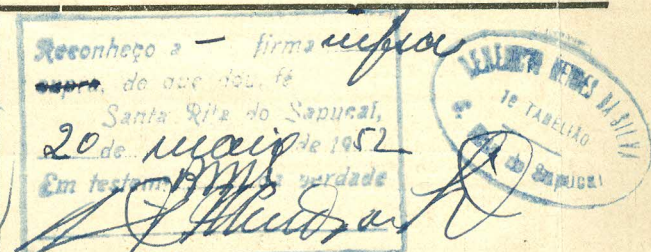 Reconheço a - firma infra
supra, do que dou fé
Santa Rita do Sapucaí,
20 de maio de 1952
Em testem da verdade
BENEDITO MENDES DA SILVA
1º TABELIÃO
Rita do Sapucaí